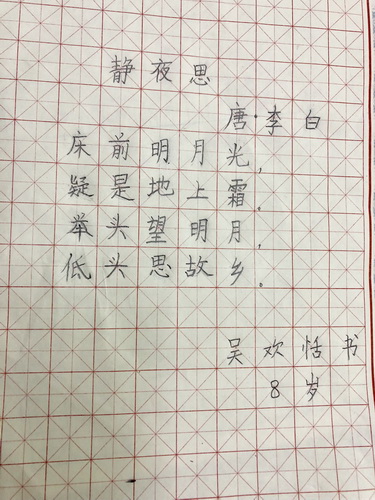 静夜思
唐·李白
床前明月光，
疑是地上霜。
举头望明月，
低头思故乡。
吴欢恬书
8岁